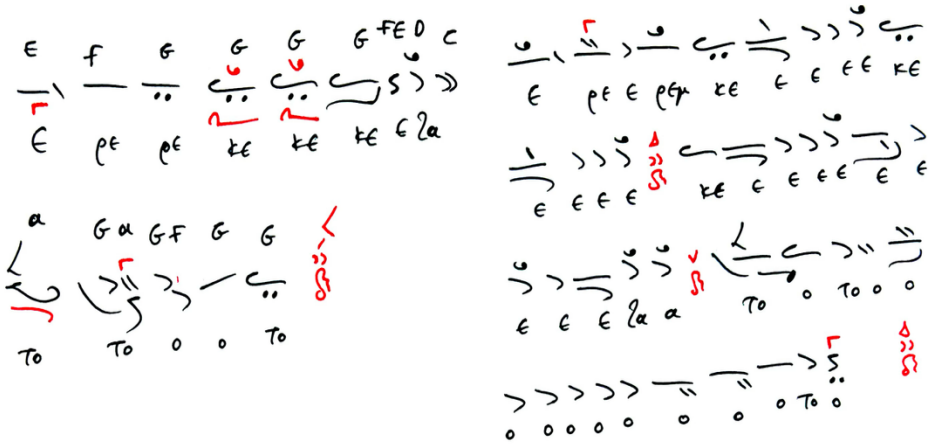 E F G G G G F E D C
ε ρε ρε κε κε κε ε λα
a G a G F G G
το το ο ο το
ε ρε ε ρεμ κε ε ε ε ε κε
ε ε ε ε κε ε ε ε ε ε ε
ε ε ε λα α το ο το ο ο
ο ο ο ο ο ο ο ο το ο